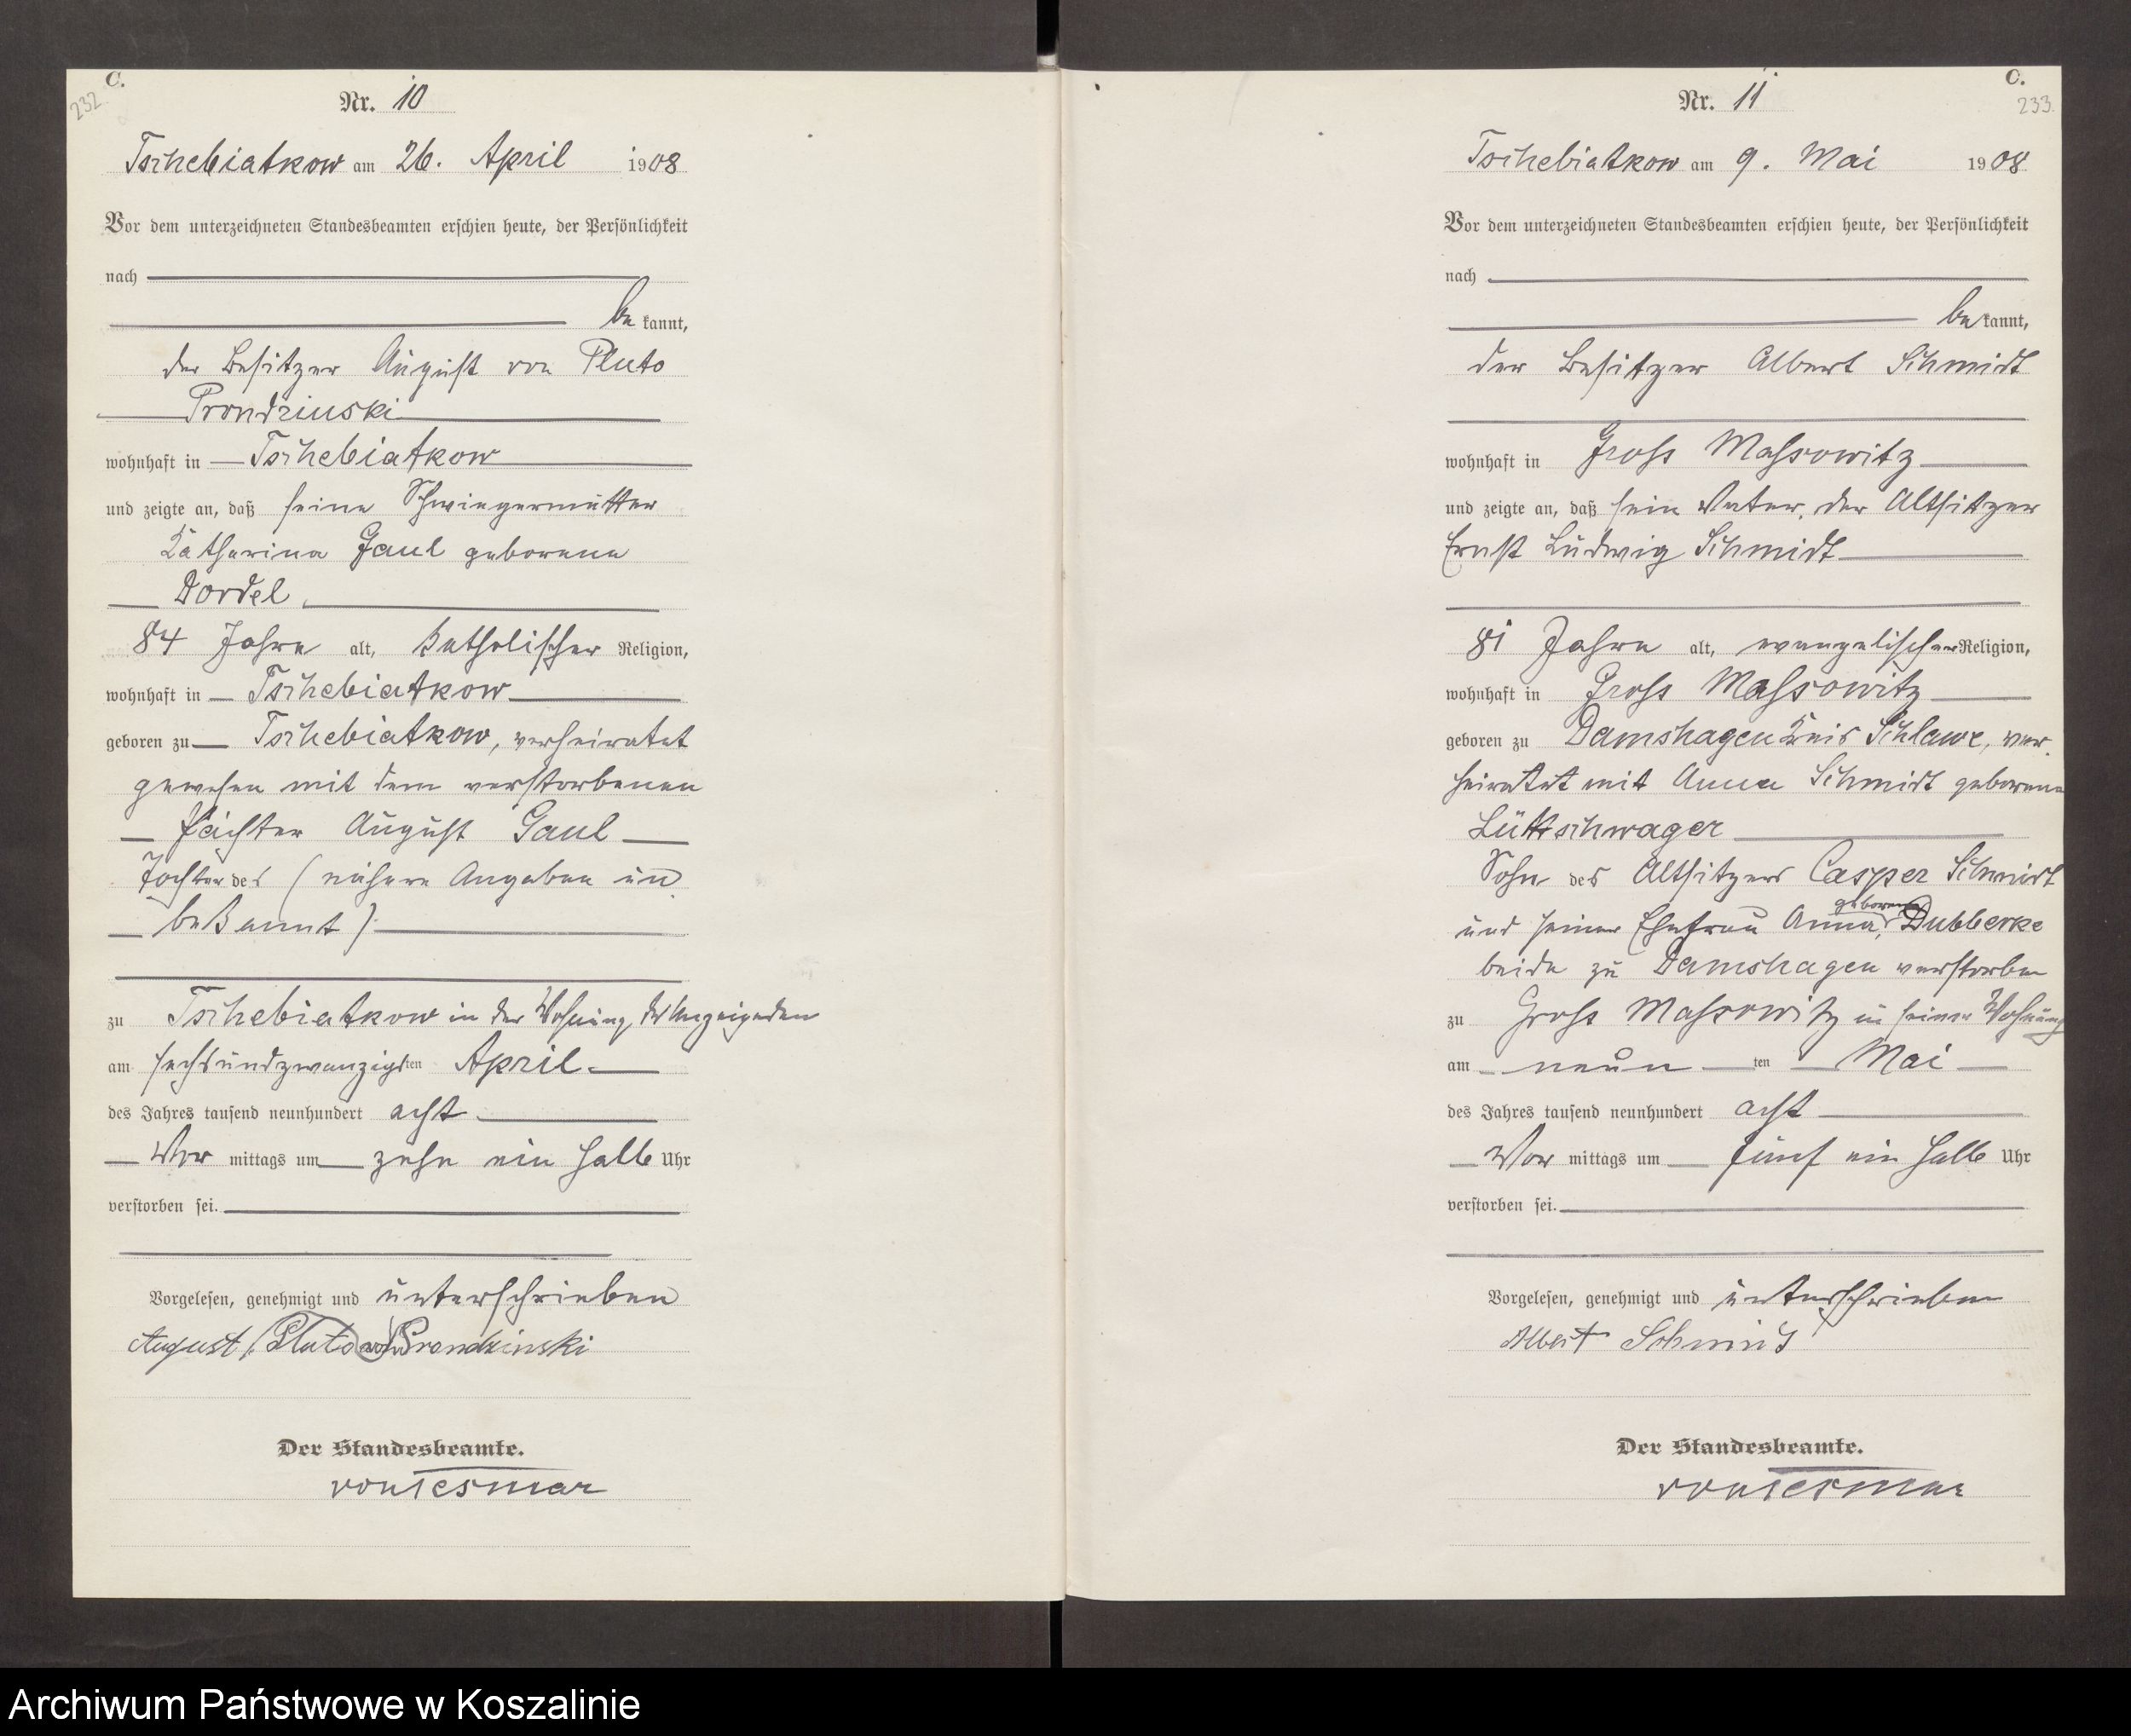 C.
232
Nr. 10
Tschebiatkow am 26. April 1908
Vor dem unterzeichneten Standesbeamten erschien heute, der Persönlichkeit
nach
be kannt,
der Besitzer August von Pluto
Prondzinski
wohnhaft in Tschebiatkow
und zeigte an, daß seine Schwiegermutter
Katharina Gaul geborene
Dordel
84 Jahre alt, katholischer Religion,
wohnhaft in Tschebiatkow
geboren zu Tschebiatkow, verheiratet
gewesen mit dem verstorbenen
Pächter August Gaul
Tochter des (nähere Angaben un
bekannt)
zu Tschebiatkow in der Wohnung des Anzeigenden
am sechsundzwanzigsten April
des Jahres tausend neunhundert acht
Vor mittags um zehn ein halb Uhr
verstorben sei.
Vorgelesen, genehmigt und unterschrieben
August Pluto von Prondzinski
Der Standesbeamte.
von Tesmar
C.
233
Nr. 11
Tschebiatkow am 9. Mai 1908
Vor dem unterzeichneten Standesbeamten erschien heute, der Persönlichkeit
nach
be kannt,
der Besitzer Albert Schmidt
wohnhaft in Gross Massowitz
und zeigte an, daß sein Vater, der Altsitzer
Ernst Ludwig Schmidt
81 Jahre alt, evangelischer Religion,
wohnhaft in Gross Massowitz
geboren zu Damshagen Kreis Schlawe, ver
heiratet mit Anna Schmidt geborene
Lüttschwager
Sohn des Altsitzers Casper Schmidt
und seiner Ehefrau Anna, geborene Dubberke
beide zu Damshagen verstorben
zu Gross Massowitz in seiner Wohnung
am neun ten Mai
des Jahres tausend neunhundert acht
Vor mittags um fünf ein halb Uhr
verstorben sei.
Vorgelesen, genehmigt und unterschrieben
Albert Schmidt
Der Standesbeamte.
von Tesmar
Archiwum Państwowe w Koszalinie